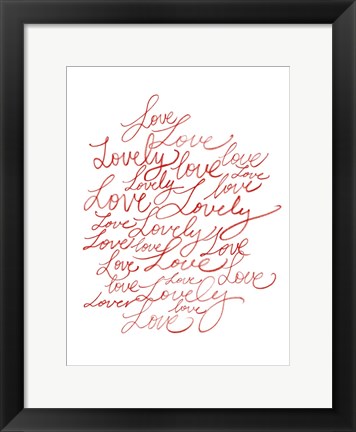 Love
Love
Lovely love love
Lovely love Love
Love Lovely
Love Lovely
Love love Love
Love Love
love Love Love
Lover Lovely
love
Love